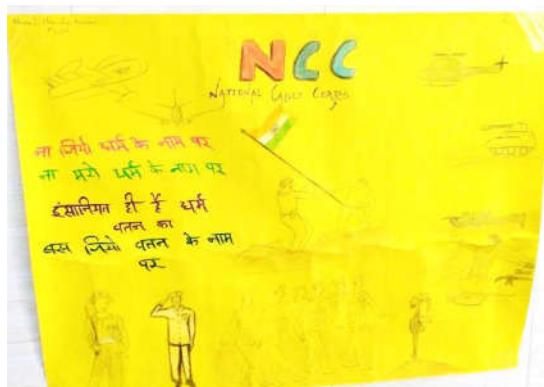 NCC
NATIONAL CADET CORPS
ना जियो धर्म के नाम पर
ना मरो धर्म के नाम पर
इंसानियत ही है धर्म
वतन का
बस जियो वतन के नाम
पर